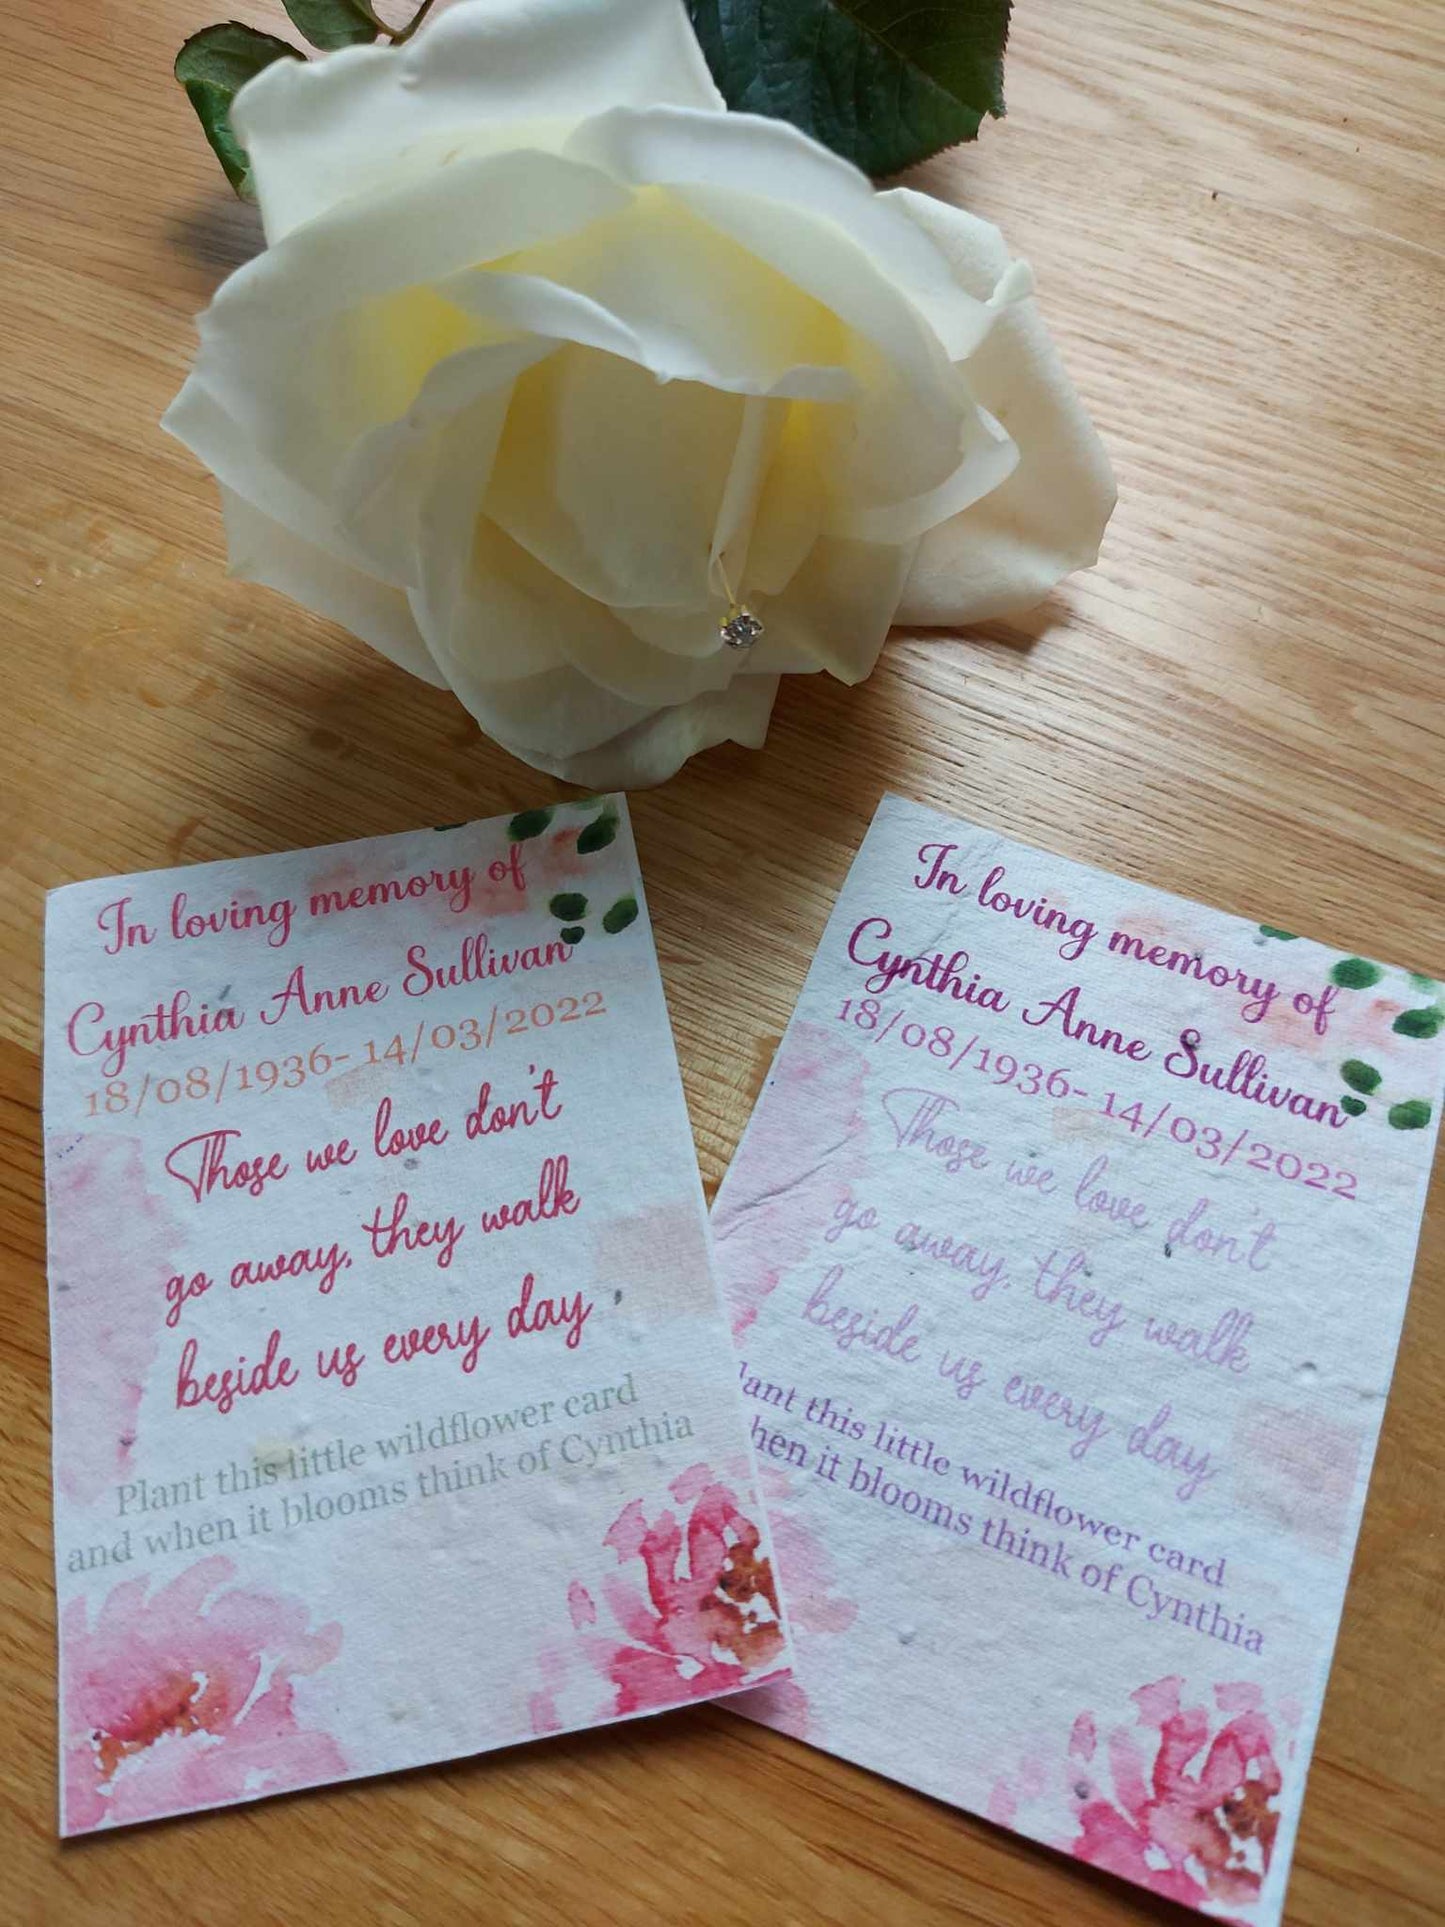 In loving memory of
Cynthia Anne Sullivan
18/08/1936- 14/03/2022
Those we love don't
go away, they walk
beside us every day
Plant this little wildflower card
and when it blooms think of Cynthia
In loving memory of
Cynthia Anne Sullivan
18/08/1936- 14/03/2022
Those we love don't
go away, they walk
beside us every day
this little wildflower card
it blooms think of Cynthia